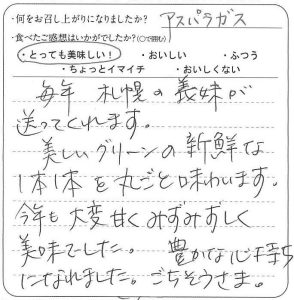 ・何をお召し上がりになりましたか？ アスパラガス
・食べたご感想はいかがでしたか？（○で囲む）
・とっても美味しい！ ・おいしい ・ふつう
・ちょっとイマイチ ・おいしくない
毎年 札幌の義妹が
送ってくれます。
美しいグリーンの新鮮な
1本1本を丸ごと味わいます。
今年も大変甘くみずみずしく
美味でした。 豊かな心持ち
になれました。ごちそうさま。